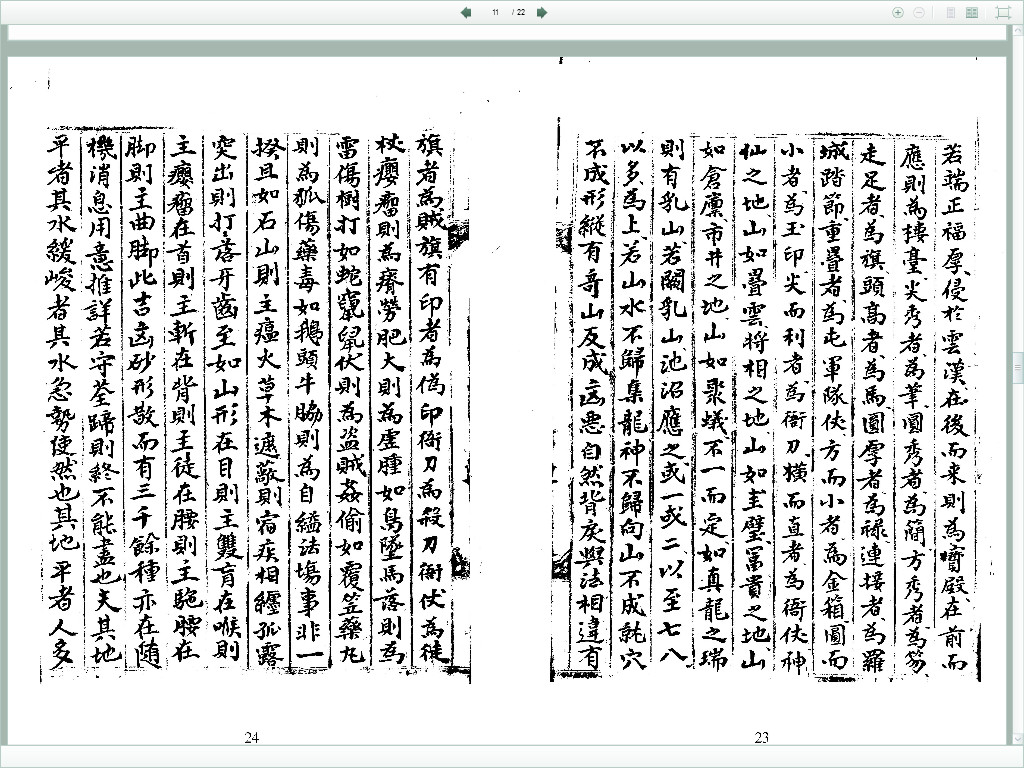 11 / 22
若端正福厚侵於雲漢在後而来則為寶殿在前而
應則為摟臺尖秀者為筆圓秀者為簡方秀者為笏
走足者為旗頭高者為馬圓厚者為祿連接者為羅
城踏節重疊者為屯軍隊伏方而小者為金箱圓而
小者為玉印尖而利者為衙刀橫而直者為衙伏神
仙之地山如疊雲將相之地山如圭璧富貴之地山
如倉廩市井之地山如聚蟻不一而定如真龍之瑞
則有乳山若闕乳山池沼應之或一或二以至七八
以多為上若山水不歸集龍神不歸向山不成穴
不成形縱有奇山反成凶惡自然背戾與法相違有
23
旗者為賊旗有印者為偽印衙刀為殺刀衙伏為徒
杖癭瘤則為癆肥大則為虛腫如鳥墜馬落則為
雷傷樹打如蛇竄鼠伏則為盜賊姦偷如覆笠藥丸
則為狐傷藥毒如鵝頭牛脇則為自縊法場事非一
揆且如石山則主瘟火草木遮蔽則宿疾相纏孤露
突出則打落牙齒至如山形在目則主雙盲在喉則
主癭瘤在首則主斬在背則主徒在腰則主駞腰在
脚則主曲脚此吉凶砂形散而有三千餘種亦在随
機消息用意推詳若守荃蹄則終不能盡也夫其地
平者其水緩峻者其水急勢使然也其地平者人多
24